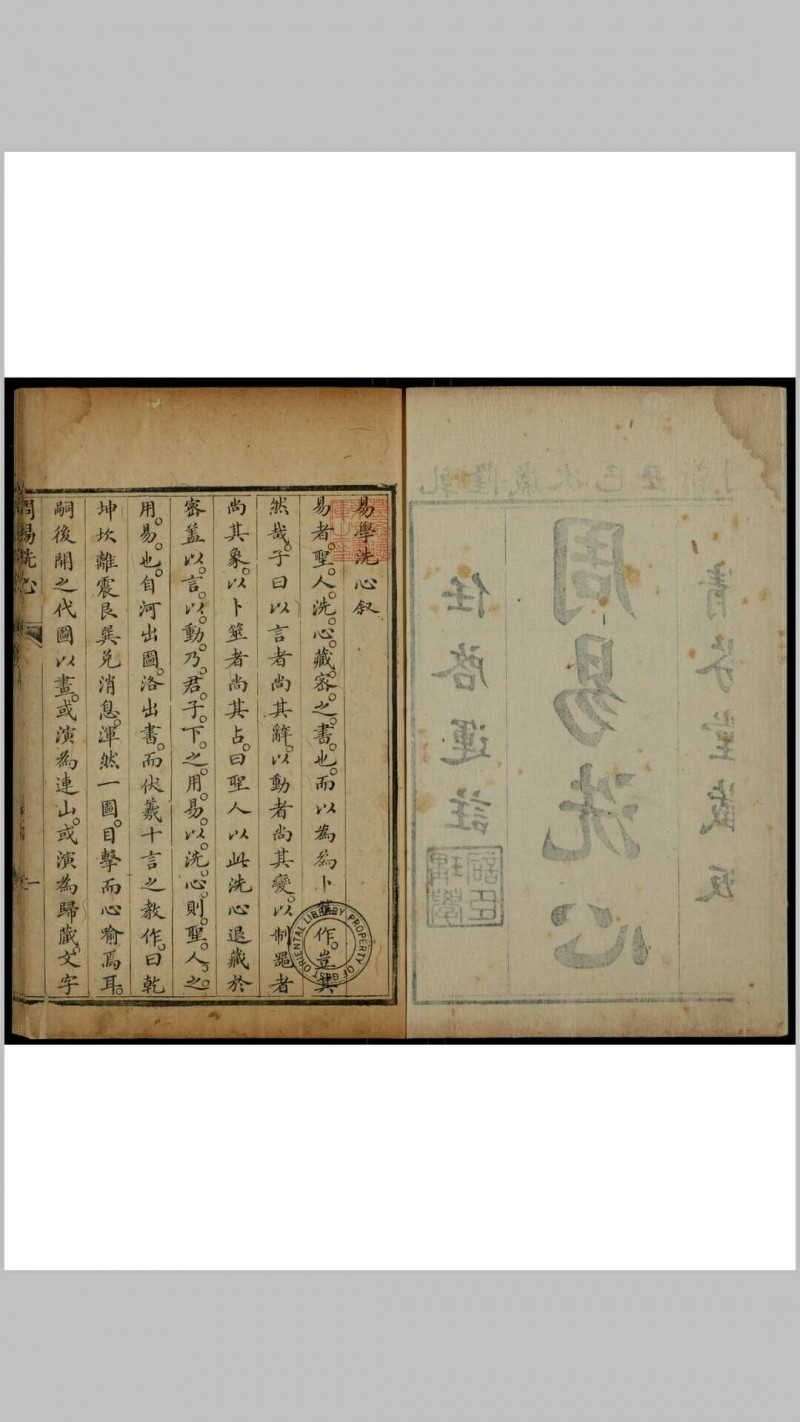 乾隆歲次己丑新刊
任啓運註
周易洗心
清芬堂藏板
易學洗心叙
易者。聖人。洗心。藏密之書也。而以為為卜筮作。豈其
然哉。子曰以言者尚其辭。以動者尚其變。以制噐者
尚其象。以卜筮者尚其占。曰聖人以此洗心退藏於
密蓋以言。以動。乃。君子下之。用易。以洗心。則聖人之。
用易也。自河出圖。洛出書。而伏羲十言之教作。曰乾
坤坎離震艮巽兑消息。渾然一圖。目擊而心喻焉耳。
嗣後開之代圖以畫。或演為連山。或演為歸藏。文字
周易洗心
一
GEST ORIENTAL LIBRARY PROPERTY OF